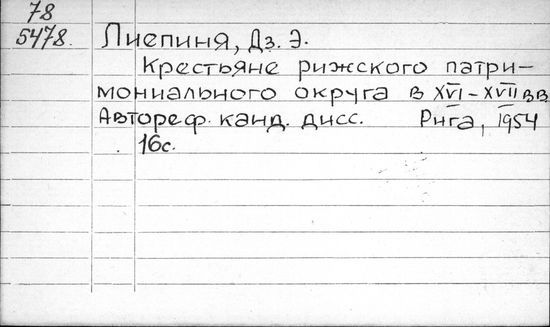 78
5478.
Лиепиня, Дз. Э.
Крестьяне рижского патри-
мониального округа в XVI - XVII вв
Автореф. канд. дисс. Рига, 1954
16с.